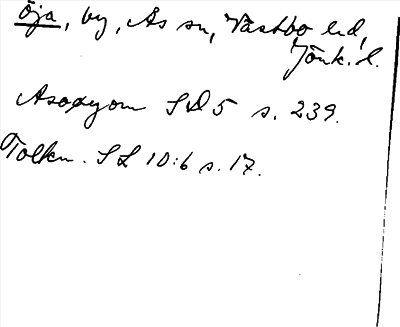 Öja, by, Ås sn, Västbo hd,
Jönk. l.
Asoøyom SD 5 s. 239.
Tolkn. SL 10:6 s. 17.